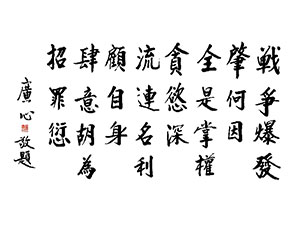 戰爭爆發
肇何因
全是掌權
貪慾深
流連名利
顧自身
肆意胡為
招罪愆
廣心敬題